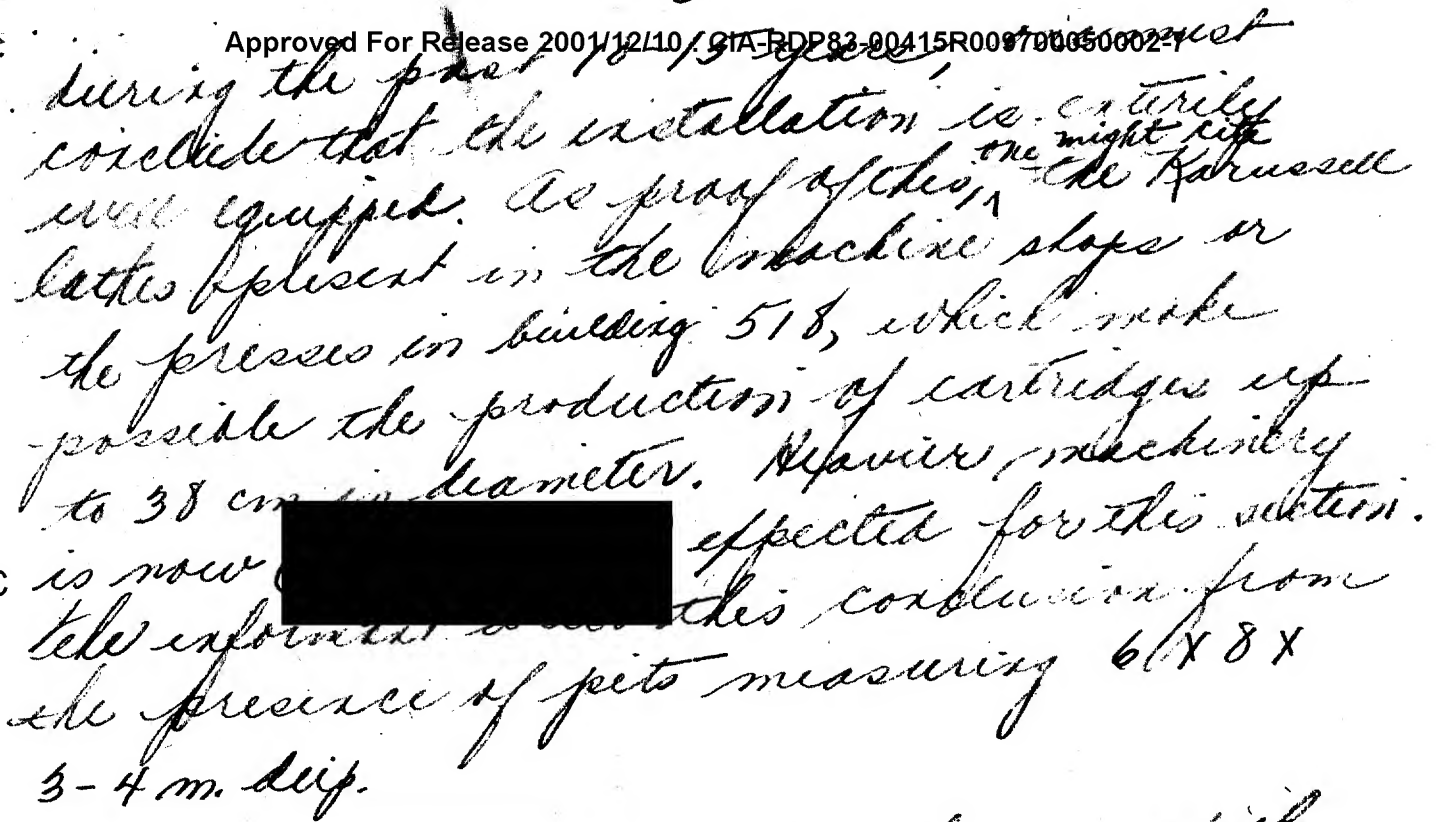 Approved For Release 2001/12/10 : CIA-RDP83-00415R009700050002-7
during the past 10-15 years, must
conclude that the installation is entirily
one might cite
well equipped. As proof of this, ^ the Karussell
lathes present in the machine shops or
the presses in building 518, which make
possible the production of cartridges up
to 38 cm in diameter. Heavier machinery
is now expected for this section.
The informant this conclusion from
the presence of pits measuring 6 X 8 X
3-4 m. deep.